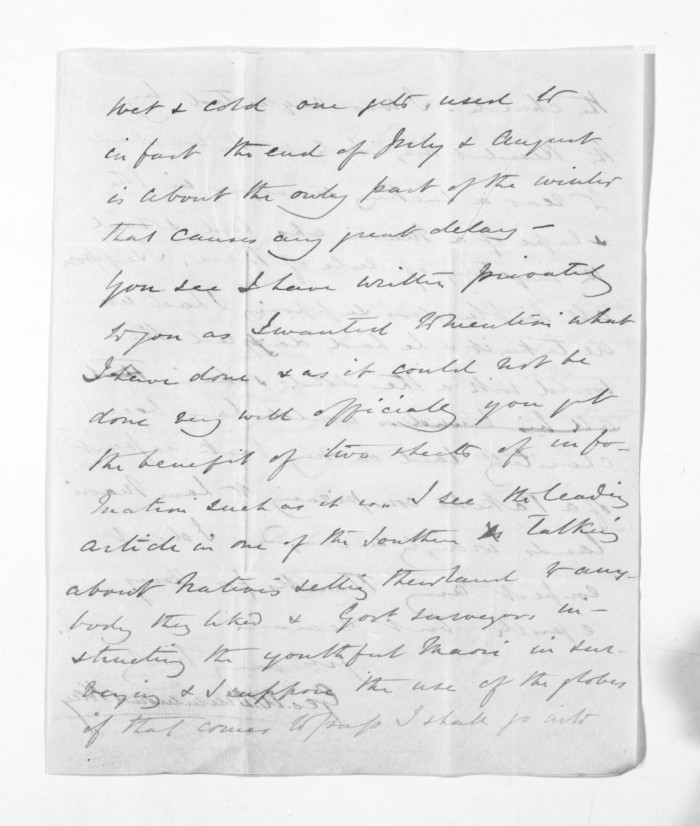 wet & cold one gets used to
in fact the end of July & August
is about the only part of the winter
that causes any great delay –
You see I have written privately
to you as I wanted to mention what
I have done & as it could not be
done very well officially you get
the benefit of two sheets of infor-
mation such as it is. I see the leading
article in one of the Southern talking
about Natives selling their land to any-
body they liked & Govt surveyors in-
structing the youthful Maori in sur-
veying & I suppose the use of the globes
if that comes to pass I shall go into